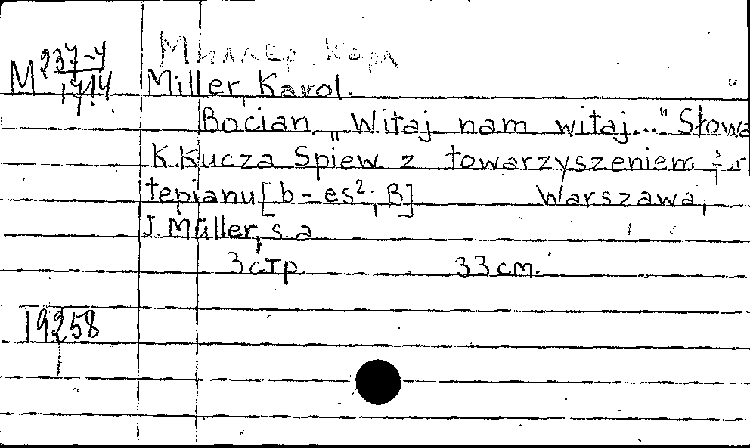 Миллер Карл
M 237-4
1714
Miller, Karol.
Bocian. „Witaj nam witaj..." Słowa
K. Kucza Spiew z towarzyszeniem
tepianu [b - es²; B] Warszawa,
J. Müller, s.a.
3 стр. 33 cm.
19258